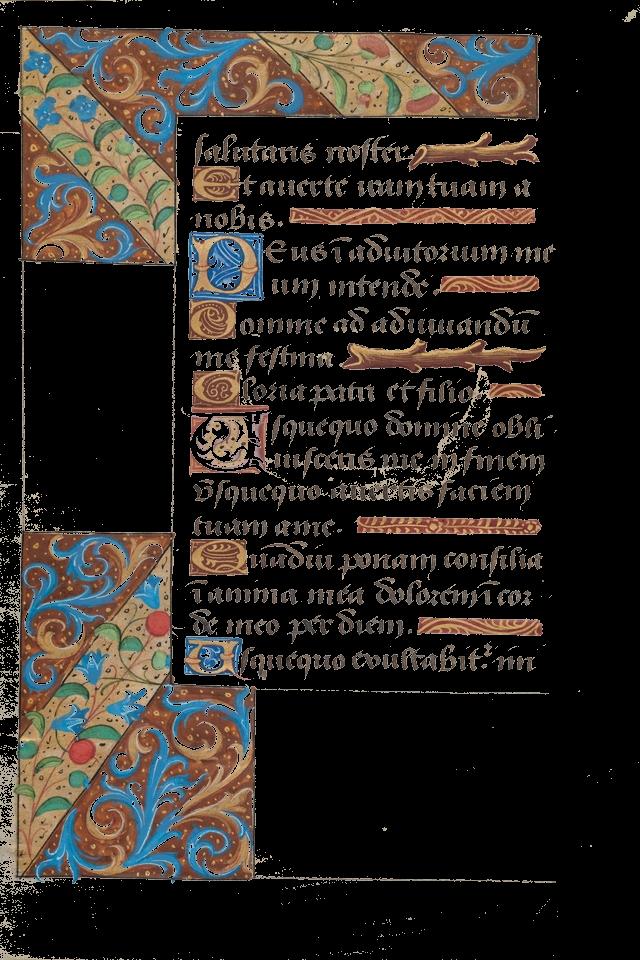 salutaris noster
Et auerte iram tuam a
nobis.
Deus ī adiutorium me
um intende.
Domine ad adiuuandū
me festina
Gloria patri et filio
Usquequo domine obli
uisceris me in finem
vsquequo auertis faciem
tuam a me.
Quādiu ponam consilia
ī anima mea dolorem ī cor
de meo per diem.
Usquequo exultabit᷑ ini